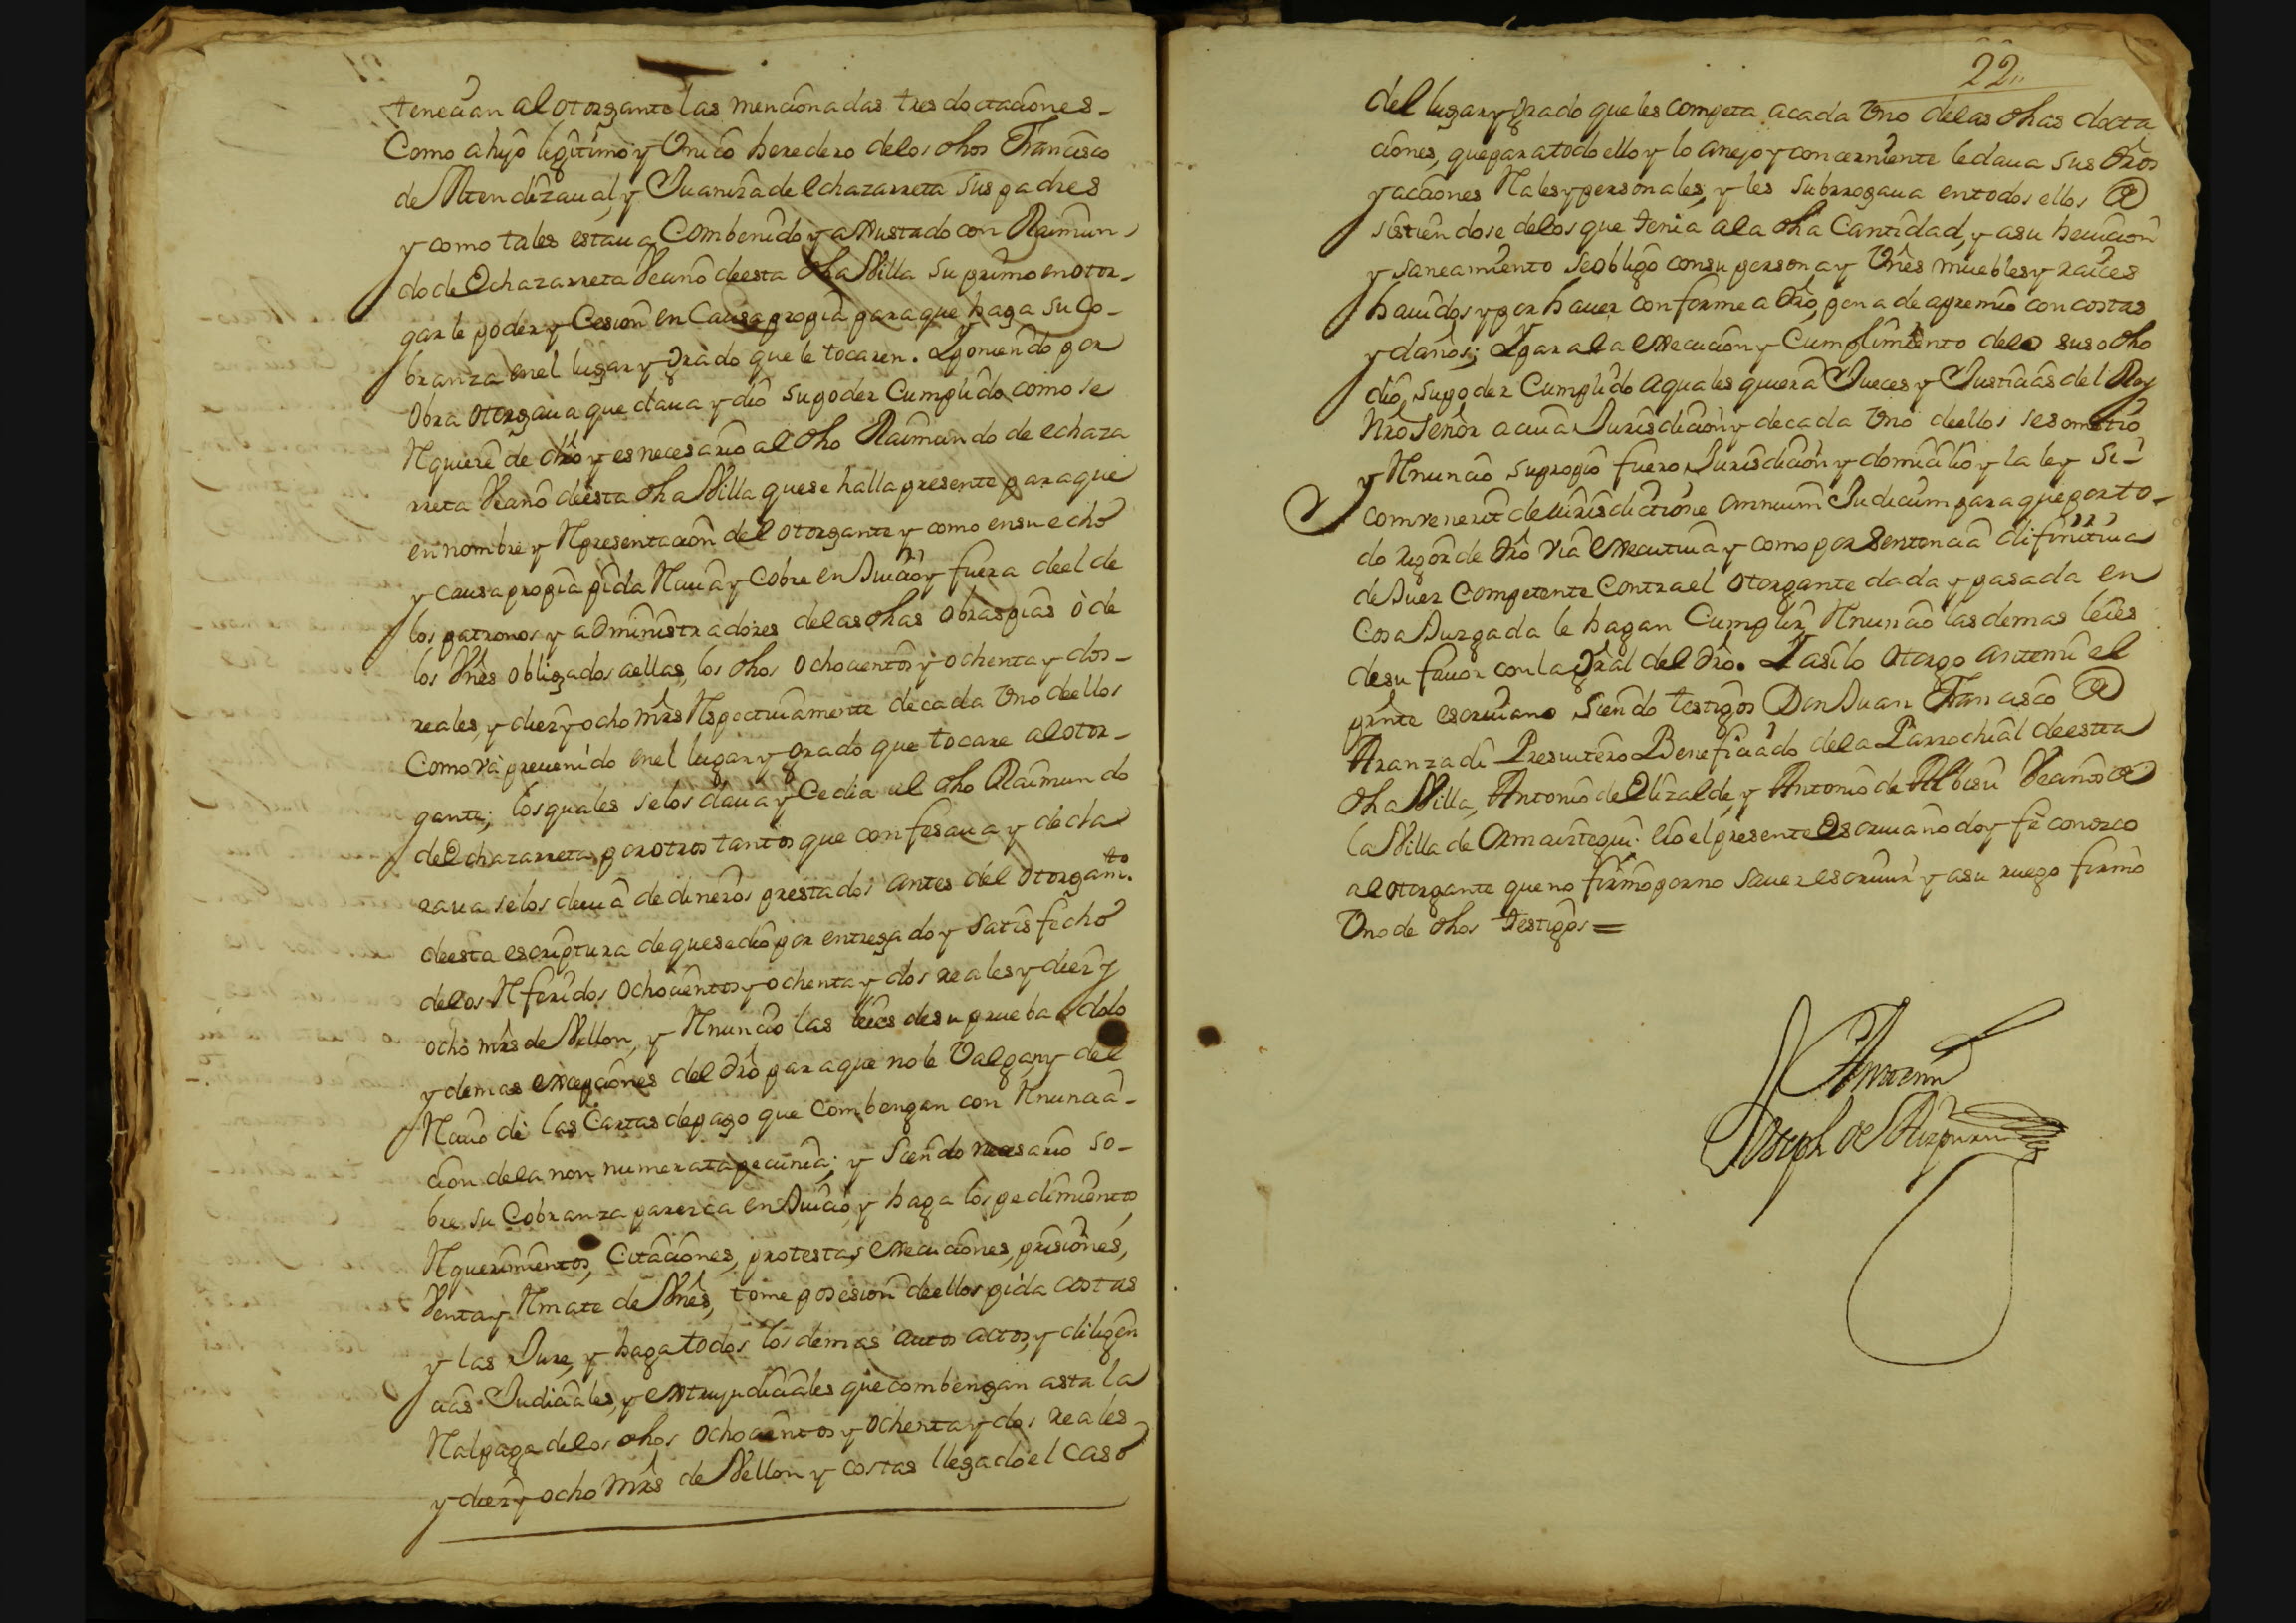 teneçian al otorgante las mencionadas tres doctaciones-
Como a hijo legitimo y Vnico heredero delos dhos Francisco
de Attendizaual, y Juaniza de Echazarreta sus padres
y como tales estaua Combenido y axustado con Raimun-
do de Echazarreta Veçino deesta dha Villa su primo en otor-
garle poder y Cesion en Causa propia para que haga su Co-
branza enel lugar y Grado que le tocaren. Y poniendo por
Obra otorgaua que daua y dio su poder Cumplido como se
Rquiere de dro y es necesario al dho Raimundo de echaza
rreta Veçino deesta dha Villa que se halla presente para que
en nombre y Rpresentacion del otorgante y como en su echo
y causa propia pida Rciua y Cobre en Juicio y fuera deel de
los patronos y administradores delas dhas obras pias ò de
los Vnes obligados aellas, los dhos ochocientos y ochenta y dos-
reales, y diez y ocho mrs Rspectiuamente de cada Vno deellos
Como và preuenido enel lugar y grado que tocare al otor-
gante; los quales selos daua y Cedia al dho Raimundo
de Echazarreta por otros tantos que confesaua y decla
raua selos deuia de dineros prestados antes del otorgamto.
deesta escriptura de que se dio por entregado y satisfecho
delos Rferidos ochocientos y ochenta y dos reales y diez y
ocho mrs de Vellon, y Rnuncio las leies de su prueba dolo
y demas excepciones del dro para que no le Valgan, y del
Rciuo dè las Cartas de pago que combengan con Rnuncia-
cion dela non numerata pecunia; y Siendo necesario so-
bre su Cobranza parezca en Juicio, y haga los pedimientos,
Rquerimientos, Citaciones, protestas, execuciones, prisiones,
Venta y Rmate de Vnes, tome posesion deellos pida costas
y las Jure, y haga todos los demas autos actos, y diligen
cias Judiciales, y extrajudiciales que combengan asta la
Ral paga delos dhos ochocientos y ochenta y dos reales
y diez y ocho mrs de Vellon y costas llegado el caso
22
del lugar y Grado que les competa acada Vno delas dhas docta
ciones, que para todo ello y lo anejo y concerniente le daua sus dros
y acciones Rales y personales, y les subrrogaua en todos ellos de
sistiendose delos que tenia ala dha Cantidad, y asu heuicion
y saneamiento se obligo con su persona y Vnes muebles y raices
hauidos y por hauer conforme a dro, pena de apremio con costas
y daños; Y para la execucion y Cumplimiento delo suso dho
dio su poder Cumplido a quales quiera Jueces y Justicias del Rey
Nro Señor a cuia Jurisdicion y de cada Vno deellos se sometio
y Rnuncio su propio fuero Jurisdicion y domicilio y la ley Si-
comvenerit de iurisdictione omnium Judicum para que por to-
do rigor de dro via executiua y como por sentencia difinitiua
de Juez Competente Contra el otorgante dada y pasada en
Cosa Juzgada le hagan Cumplir, Rnuncio las demas leies
de su fauor con la Gral del dro. Y asi lo otorgo ante mi el
prnte escriuano siendo testigos Don Juan Francisco de
Aranzadi Presuitero Beneficiado dela Parrochial deesta
dha Villa, Antonio de Elizalde, y Antonio de Albisu Vecinos de
la Villa de Ormaiztegui: eio el presente Escriuano doy fè conozco
al otorgante que no firmo por no sauer escriuir y asu ruego firmo
Vno de dhos testigos =
Ante mi
Joseph de Aizpuru